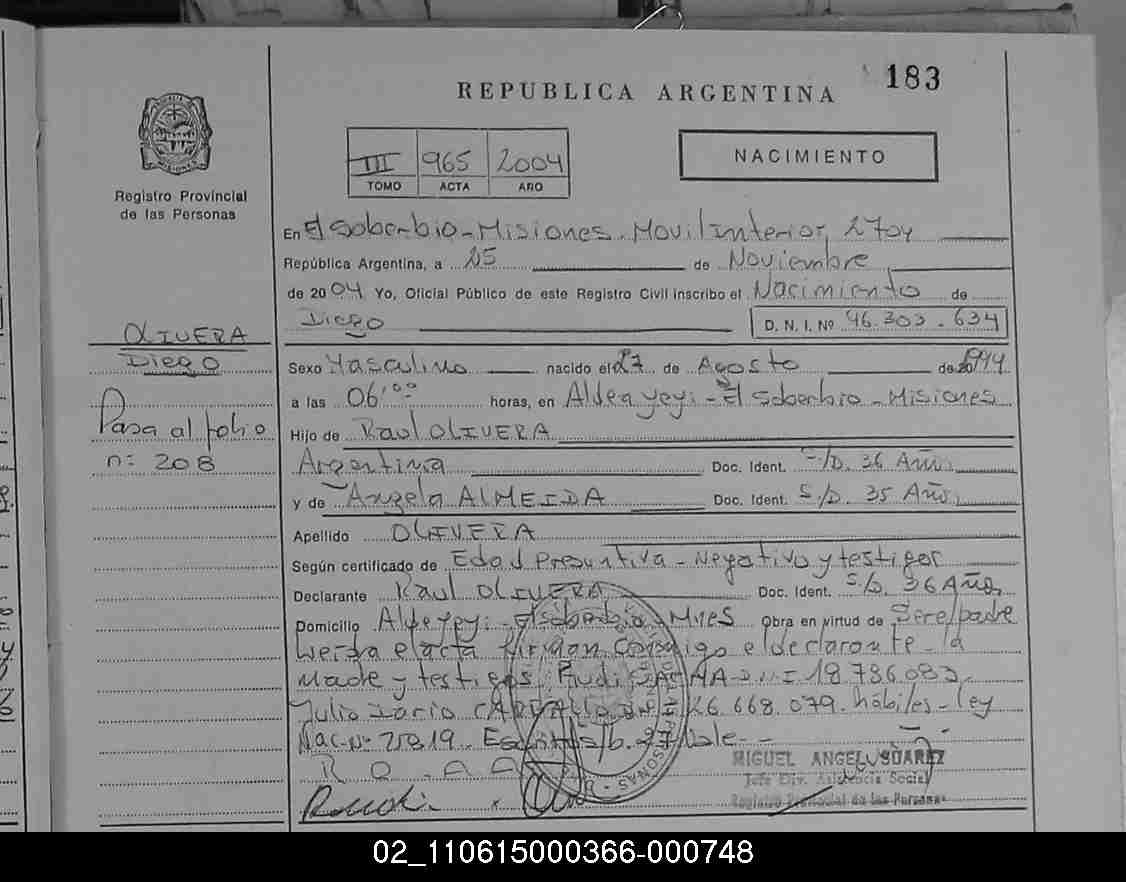 183
REPUBLICA ARGENTINA
III 965 2004
TOMO ACTA AÑO
NACIMIENTO
Registro Provincial
de las Personas
En El Soberbio - Misiones. Movil Interior, 2704
República Argentina, a 25 de Noviembre
de 2004 Yo, Oficial Público de este Registro Civil inscribo el Nacimiento de
Diego D. N. I. Nº 46.303.634
OLIVERA
Diego
Pasa al folio
n: 208
Sexo Masculino nacido el 27 de Agosto de 1994
a las 06'00 horas, en Aldea yeyi - El Soberbio - Misiones
Hijo de Raul OLIVERA
Argentina Doc. Ident. S/D. 36 Años
y de Angela ALMEIDA Doc. Ident. S/D. 35 Años
Apellido OLIVERA
Según certificado de Edad Presuntiva - Negativo y testigos
Declarante Raul OLIVERA Doc. Ident. S/D. 36 Años
Domicilio Aldea yeyi - El Soberbio - Mnes Obra en virtud de Ser el padre
el acta firman conmigo el declarante - la
Madre y testigos D.N.I 18.786.083
Julio 26.668.079. hábiles - ley
Nac. Nº 25819. s/b. 27 Vale -
MIGUEL ANGEL SUAREZ
Jefe Div. Asistencia Social
Registro Provincial de las Personas
02_110615000366-000748